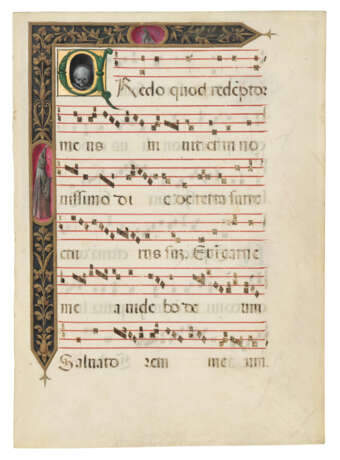 Credo quod redẽptor
meus vivit et in no
vissimo di e de terra surre
ctu rus sũ. Et in carne
me a vide bo de um
Salvato rem me um.